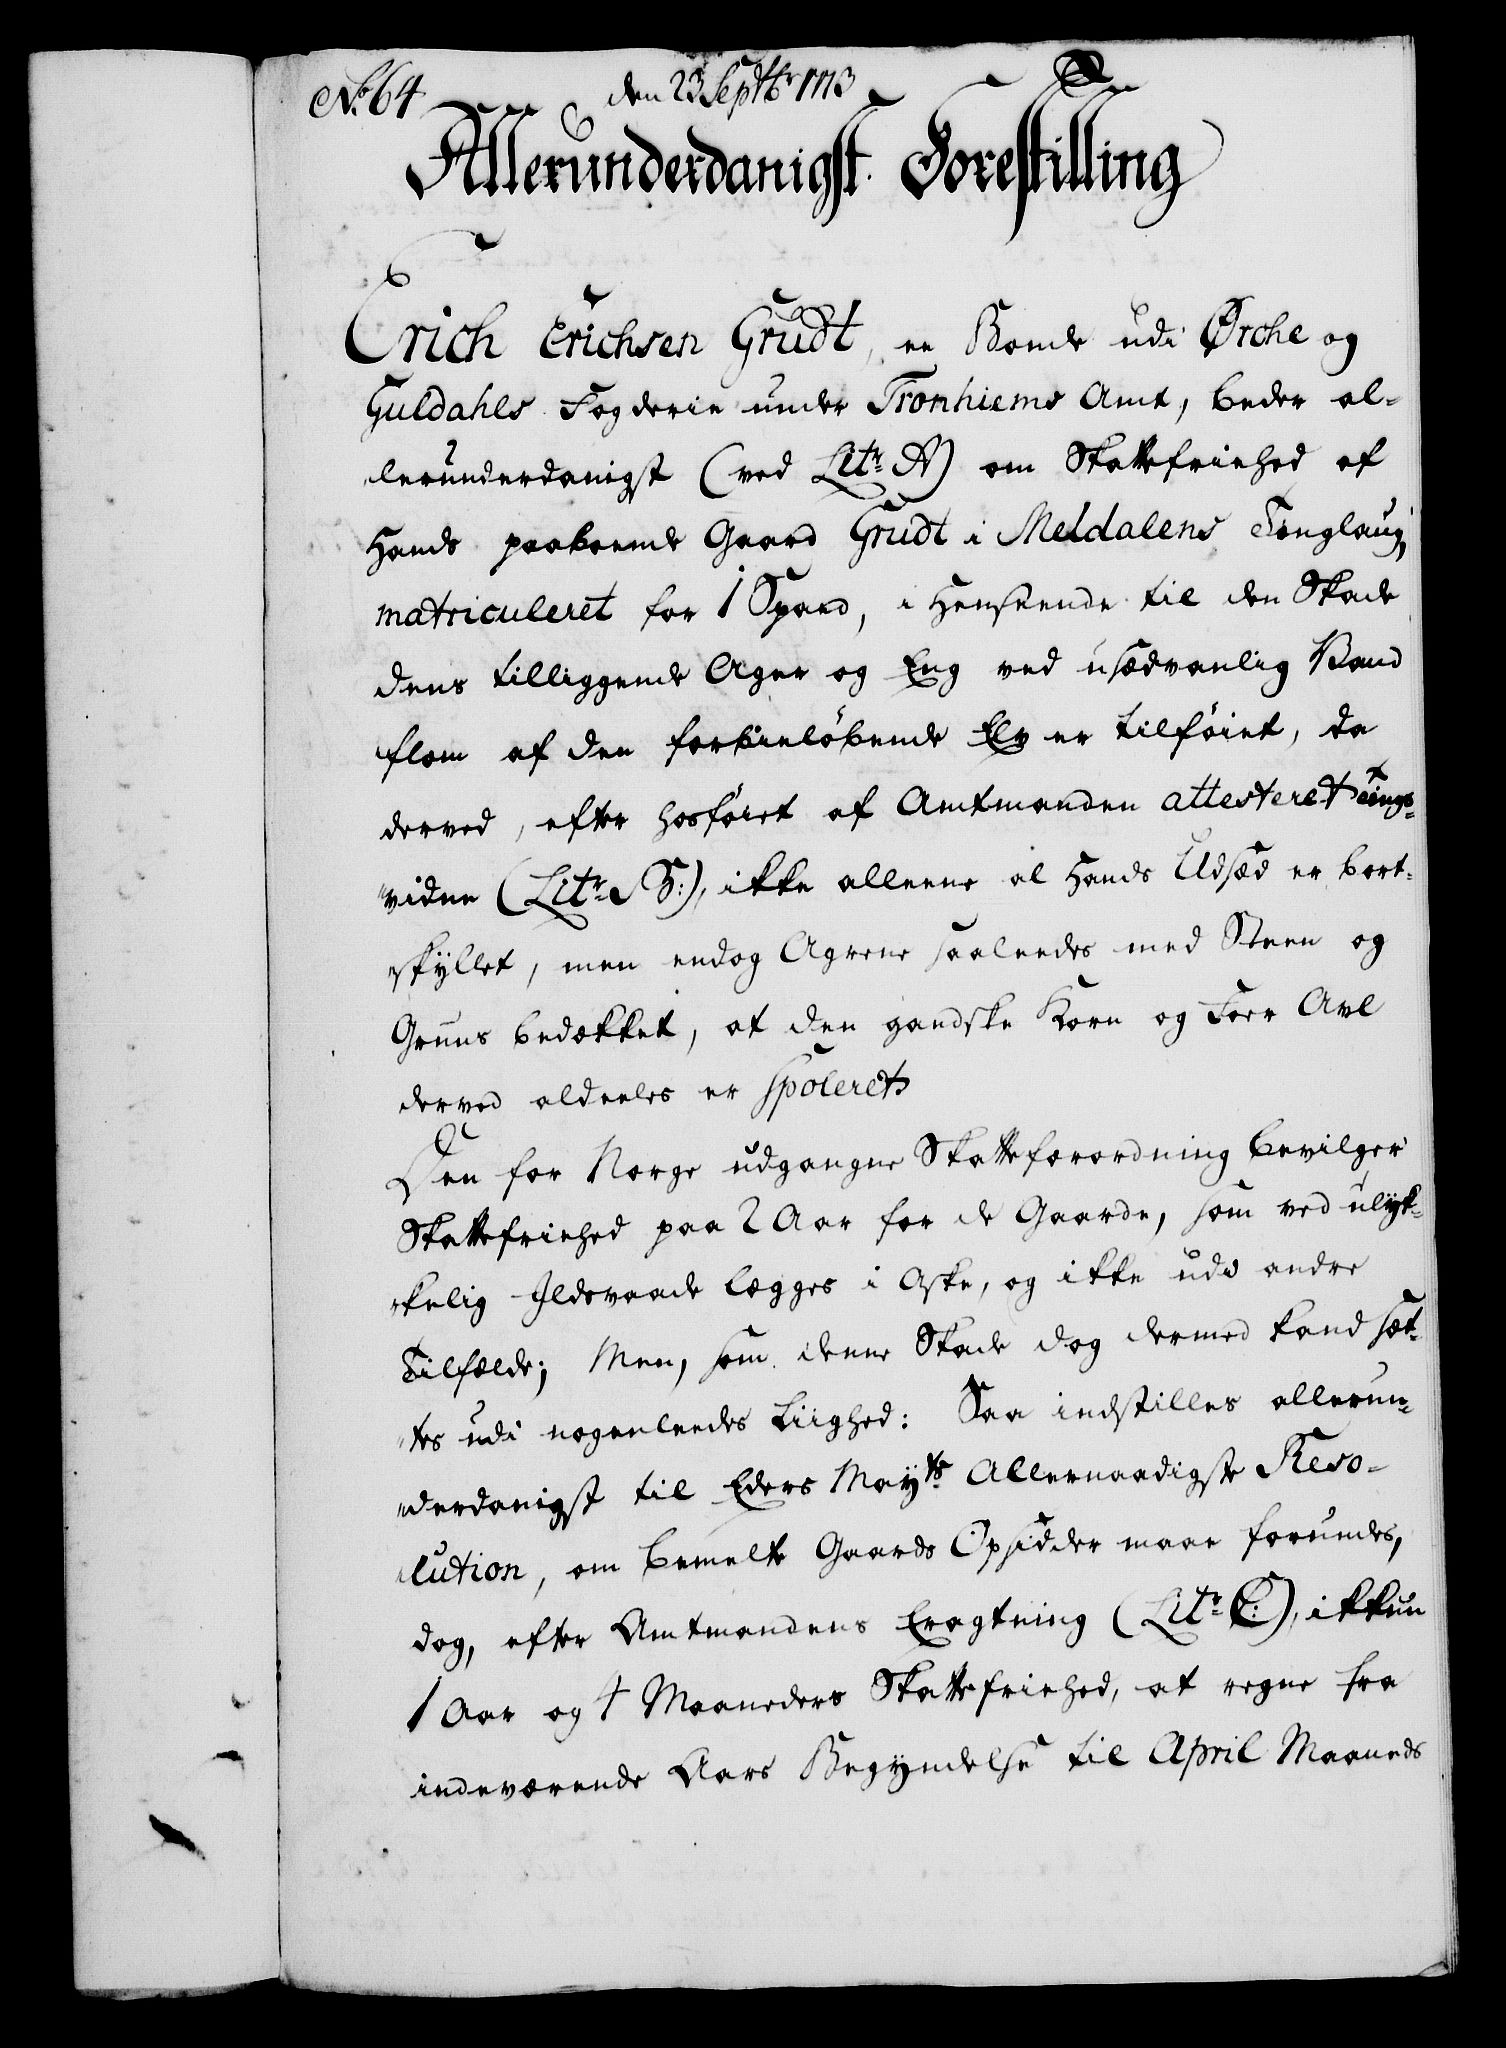 No. 64
den 23 Septbr 1773
Allerunderdanigst Forestilling
Erich Erichsen Grudt, en Bonde udi Ørche og
Guldahls Fogderie under Tronhiems Amt, beder al-
lerunderdanigst (ved Litr. A) om Skattefriehed af
Hands paaboende Gaard Grudt i Meldalens Tinglaug,
matriculeret for 1 Spand, i Henseende til den Skade
dens tilliggende Ager og Eng ved usædvanlig Vand
flom af den forbieløbende Elv er tilføiet, da
derved, efter hosføiet af Amtmanden attesteret Tings-
vidne (Litr. B:), ikke alleene al Hands Udsæd er bort-
skyllet, men endog Agrene saaleedes med Steen og
Gruus bedækket, at den gandske Korn og Foer Avl
derved aldeeles er spoleret.
Den for Norge udgangne Skatteforordning bevilger
Skattefriehed paa 2 Aar for de Gaarde, som ved ulyk-
kelig Ildsvaade legges i Aske, og ikke udi andre
Tilfælde; Men, som denne Skade dog dermed kand sæt-
tes udi nogenleedes Liighed: Saa indstilles allerun-
derdanigst til Eders Mayts Allernaadigste Reso-
lution, om bemelte Gaards Opsidder maae forundes,
dog, efter Amtmandens Eragtning (Litr. C:), ikkun
1 Aar og 4 Maaneders Skattefriehed, at regne fra
indeværende Aars Begyndelse til April Maaneds